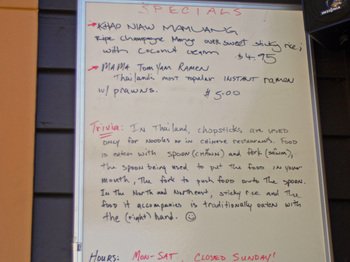 SPECIALS
* KHAO NIAW MAMUANG
Ripe champagne Mango over sweet sticky rice,
with coconut cream $4.95
* MAMA Tom Yam RAMEN
Thailand's most popular INSTANT ramen
w/ prawns. $5.00
Trivia: IN Thailand, chopsticks are used
only for noodles or in chinese restaurants. Food
is eaten with spoon and fork
the spoon being used to put the food in your
mouth, the fork to push food onto the spoon.
In the North and Northeast, sticky rice and the
food it accompanies is traditionally eaten with
the (right) hand. ☺
HOURS: MON-SAT CLOSED SUNDAY!